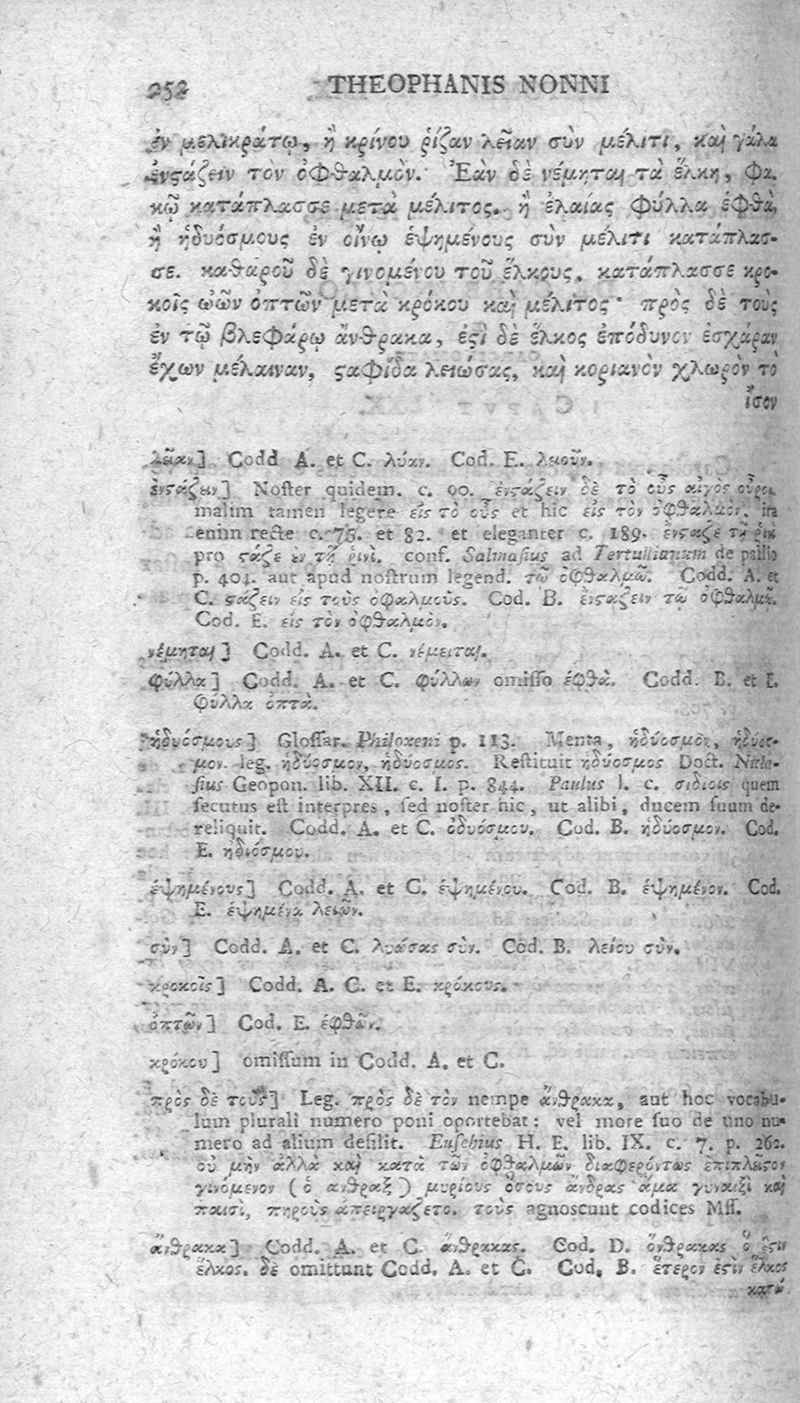 252 THEOPHANIS NONNI
ἐν μελικράτῳ, ἢ κρίνου ῥίζαν λείαν σὺν μέλιτι, καὶ γάλα
ἐνςάζειν τὸν ὀφθαλμὸν. Ἐὰν δὲ νέμηται τὰ ἕλκη, φα-
κῷ κατάπλασσε μετὰ μέλιτος. ἢ ἐλαίας φύλλα ἑφθὰ,
ἢ ἡδυόσμους ἐν οἴνῳ ἑψημένους σὺν μέλιτι κατάπλασ-
σε. καθαροῦ δὲ γινομένου τοῦ ἕλκους, κατάπλασσε κρο-
κοῖς ὠῶν ὀπτῶν μετὰ κρόκου καὶ μέλιτος· πρὸς δὲ τοὺς
ἐν τῷ βλεφάρῳ ἄνθρακα, ἐςὶ δὲ ἕλκος ἐπόδυνον ἐσχάραν
ἔχων μέλαιναν, ςαφίδα λειώσας, καὶ κοριανὸν χλωρὸν τὸ
ἴσον
λείαν] Codd A. et C. λύαν. Cod. E. λειοῦν.
ἐνςάζειν] Noſter quidem. c. 90. ἐνςάζειν δὲ τὸ οὖς αἰγὸς οὖρον.
malim tamen legere εἰς τὸ οὖς et hic εἰς τὸν ὀφθαλμὸν. ita
enim recte c. 75. et 82. et eleganter c. 189. ἔνςαζε τῇ ῥινὶ
pro ςάζε ἐν τῇ ῥινὶ. conf. Salmaſius ad Tertullianum de pallio
p. 404. aut apud noſtrum legend. τῷ ὀφθαλμῷ. Codd. A. et
C. ςάζειν εἰς τοὺς ὀφαλμοὺς. Cod. B. ἐνςάζειν τῷ ὀφθαλμῷ.
Cod. E. εἰς τὸν ὀφθαλμὸν.
νέμηται] Codd. A. et C. νέμειται.
φύλλα] Codd. A. et C. φύλλων omiſſo ἑφθὰ. Codd. B. et E.
φύλλα ὀπτὰ.
ἡδυόσμους] Gloſſar. Philoxeni p. 113. Menta, ἡδύοσμον, ἡδύος-
μον. leg. ἡδύοσμον, ἡδύοσμος. Reſtituit ἡδύοσμος Doct. Nicla-
ſius Geopon. lib. XII. c. I. p. 844. Paulus l. c. σιδίοις quem
ſecutus eſt interpres, ſed noſter hic, ut alibi, ducem ſuum de-
reliquit. Codd. A. et C. ὀδυόσμου. Cod. B. ἡδύοσμον. Cod.
E. ἡδιόσμου.
ἑψημένους] Codd. A. et C. ἑψημένου. Cod. B. ἑψημένον. Cod.
E. ἑψημένα λειῶν.
σὺν] Codd. A. et C. λυώσας σὺν. Cod. B. λείου σὺν.
κροκοῖς] Codd. A. C. et E. κρόκους.
ὀπτῶν] Cod. E. ἑφθῶν.
κρόκου] omiſſum in Codd. A. et C.
πρὸς δὲ τοὺς] Leg. πρὸς δὲ τὸν nempe ἄνθρακα, aut hoc vocabu-
lum plurali numero poni oportebat: vel more ſuo de uno nu-
mero ad alium deſilit. Euſebius H. E. lib. IX. c. 7. p. 262.
οὐ μὴν ἀλλὰ καὶ κατὰ τῶν ὀφθαλμῶν διαφερόντως ἐπιπλεῖςον
γινόμενον (ὁ ἄνθραξ) μυρίους ὅσους ἄνδρας ἅμα γυναιξὶ καὶ
παισὶ, πηροὺς ἀπειργάζετο. τοὺς agnoscunt codices Mſſ.
ἄνθρακα] Codd. A. et C. ἄνθρακας. Cod. D. ἄνθρακας ὅ ἐςιν
ἕλκος. δὲ omittunt Codd. A. et C. Cod. B. ἕτερον ἐςὶν ἕλκος
κατώ